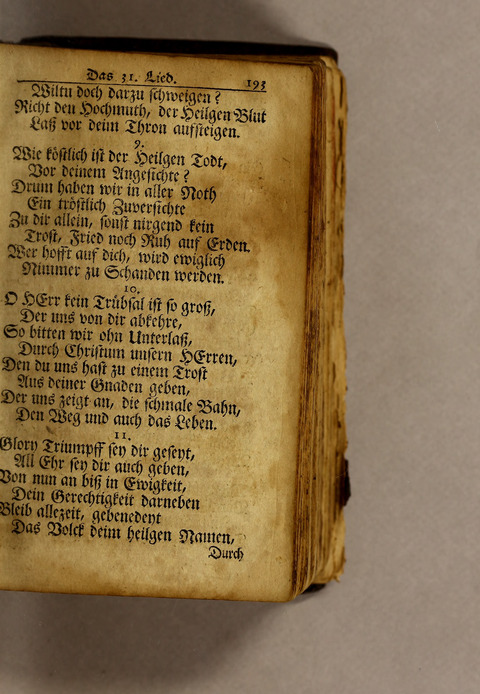 Das 31. Lied. 193
Wiltu doch darzu schweigen?
Richt den Hochmuth, der Heilgen Blut
Laß vor deim Thron aufsteigen.
9.
Wie köstlich ist der Heilgen Todt,
Vor deinem Angesichte?
Drum haben wir in aller Noth
Ein tröstlich Zuversichte
Zu dir allein, sonst nirgend kein
Trost, Fried noch Ruh auf Erden.
Wer hofft auf dich, wird ewiglich
Nimmer zu Schanden werden.
10.
O HErr kein Trübsal ist so groß,
Der uns von dir abkehre,
So bitten wir ohn Unterlaß,
Durch Christum unsern HErren,
Den du uns hast zu einem Trost
Aus deiner Gnaden geben,
Der uns zeigt an, die schmale Bahn,
Den Weg und auch das Leben.
11.
Glory Triumpff sey dir geseyt,
All Ehr sey dir auch geben,
Von nun an biß in Ewigkeit,
Dein Gerechtigkeit darneben
Bleib allezeit, gebenedeyt
Das Volck deim heilgen Namen,
Durch